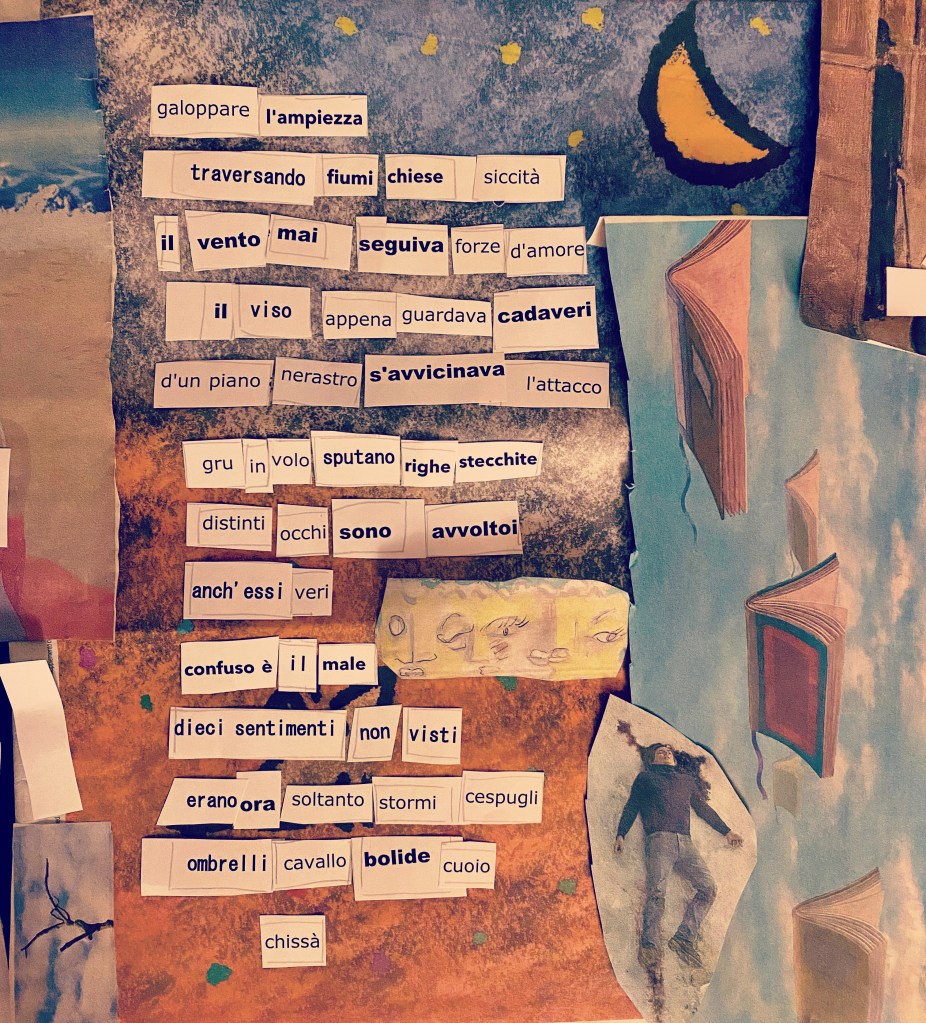 galoppare l'ampiezza
traversando fiumi chiese siccità
il vento mai seguiva forze d'amore
il viso appena guardava cadaveri
d'un piano nerastro s'avvicinava l'attacco
gru in volo sputano righe stecchite
distinti occhi sono avvoltoi
anch'essi veri
confuso è il male
dieci sentimenti non visti
erano ora soltanto stormi cespugli
ombrelli cavallo bolide cuoio
chissà